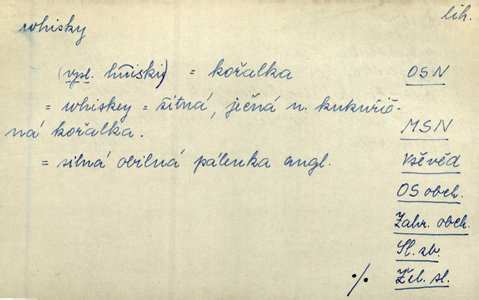 lih.
whisky
(vysl. hŭiski) = kořalka OSN
= whiskey = žitná, ječná n. kukuřič-
ná kořalka. MSN
= silná obilná pálenka angl. Vševěd
OS obch.
Zahr. obch.
Sl. zb.
·/· Žeb. sl.